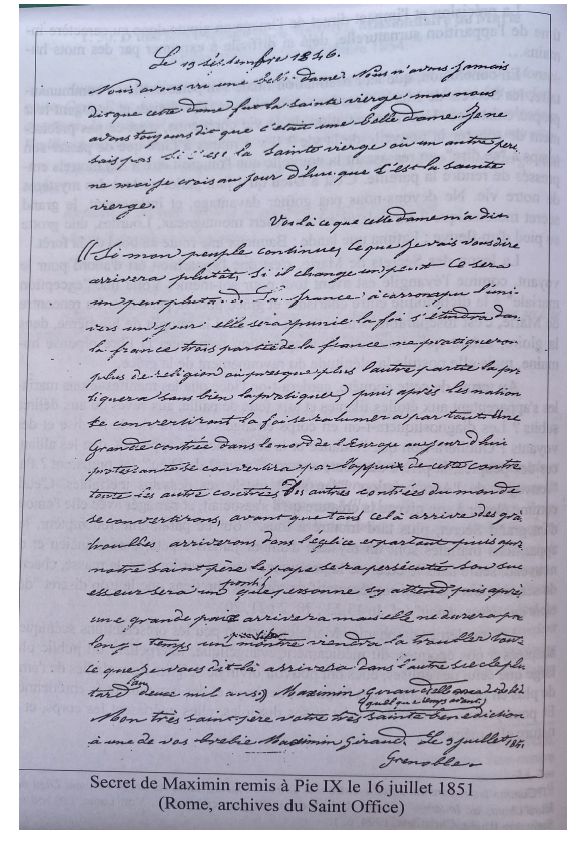 Le 19 septembre 1846.
Nous avons vu une belle dame. Nous n'avons jamais
dit que cette dame fut la sainte vierge mais nous
avons toujours dit que c'était une belle dame. Je ne
sais pas si c'est la sainte vierge où un autre per
ne moi je crois aujour d'hui que c'est la sainte
vierge.
Voilà ce que cette dame m'a dit
((Si mon peuple continue, ce que je vais vous dire
arrivera plutôt, si il change un peu ce sera
un peu plus tard. La france à corrompu l'uni
vers un jour elle sera punie la foi s'éteindra dan
la france trois partie de la france ne pratiqueron
plus de religion où presque plus l'autre partie la pra
tiquera sans bien la pratiquer) puis après les nation
se convertiront la foi se rallumera par tout. Une
Grande contrée dans le nord de l'Europe aujour d'hui
protestante se convertira par l'appui de cette contrée
toute les autre contrées du monde
se convertirons, avant que tous celà arrive des gra
troubles arriverons dans l'église et partout puis apr
notre saint père le pape sera persécuté son suc
esseur sera un pontif que personne sy attend puis après
une grande paix arrivera mais elle ne durera pa
long-temps un monstre viendra la troubler tout
ce que je vous dit là arrivera dans l'autre siècle plu
tard deuce mil ans)) Maximin Giraud
(quelque temps avant)
Mon très saint père votre très sainte bénédiction
à une de vos brebie Maximin Giraud. Le 3 juillet 1851
Grenoble
Secret de Maximin remis à Pie IX le 16 juillet 1851
(Rome, archives du Saint Office)